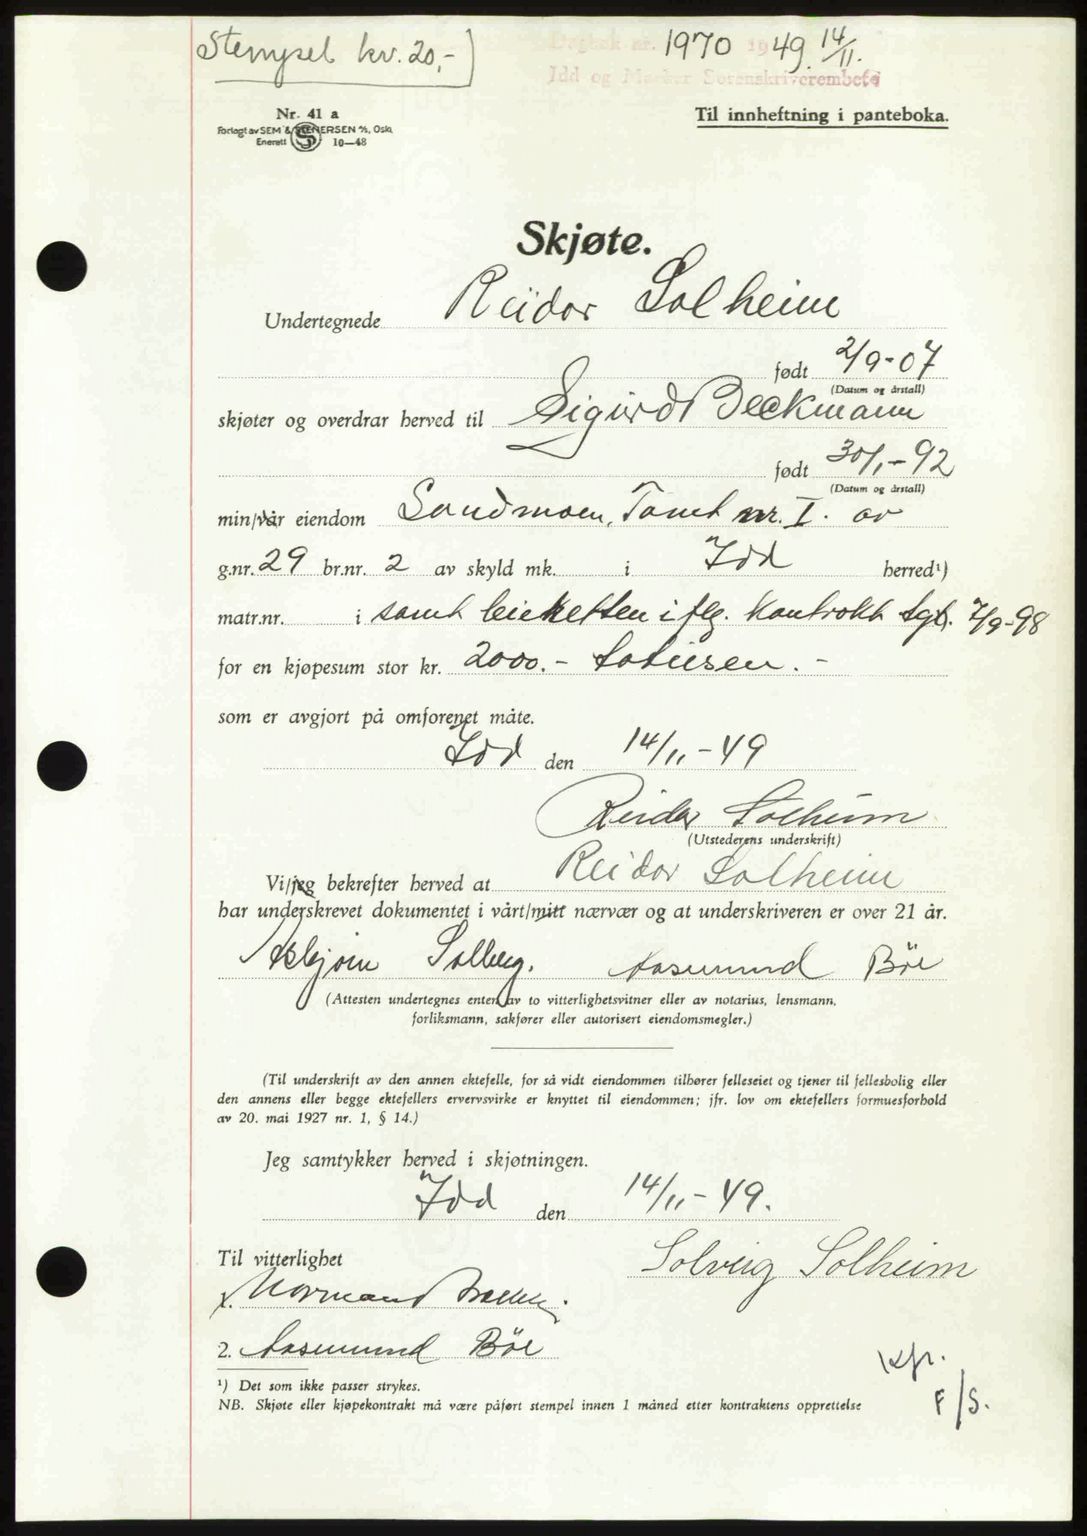 Stempel kr. 20,-
Dagbok nr. 1970 1949. 14/11.
Idd og Marker Sorenskriverembete
Nr. 41 a
Forlagt av SEM & STENERSEN A/S, Oslo
Enerett 10—48
Til innheftning i panteboka.
Skjøte.
Undertegnede Reidar Solheim
født 2/9-07
(Datum og årstall)
skjøter og overdrar herved til Sigurd Beckmann
født 30/1-92
(Datum og årstall)
min/vår eiendom Sandmoen, Tomt nr. I. av
g.nr. 29 br.nr. 2 av skyld mk. i Idd herred¹)
matr.nr. i samt leieretten i flg. Kontrakt tgl. 7/9-98
for en kjøpesum stor kr. 2000.- totusen.-
som er avgjort på omforenet måte.
Idd den 14/11-49
Reidar Solheim
(Utstederens underskrift)
Vi/jeg bekrefter herved at Reidar Solheim
har underskrevet dokumentet i vårt/mitt nærvær og at underskriveren er over 21 år.
Asbjørn Solberg. Aasmund Böe
(Attesten undertegnes enten av to vitterlighetsvitner eller av notarius, lensmann,
forliksmann, sakfører eller autorisert eiendomsmegler.)
(Til underskrift av den annen ektefelle, for så vidt eiendommen tilhører felleseiet og tjener til fellesbolig eller
den annens eller begge ektefellers ervervsvirke er knyttet til eiendommen; jfr. lov om ektefellers formuesforhold
av 20. mai 1927 nr. 1, § 14.)
Jeg samtykker herved i skjøtningen.
Idd den 14/11-49.
Til vitterlighet
Solveig Solheim
1. Normann
2. Aasmund Böe
Kfr.
¹) Det som ikke passer strykes.
NB. Skjøte eller kjøpekontrakt må være påført stempel innen 1 måned etter kontraktens opprettelse
F/S.